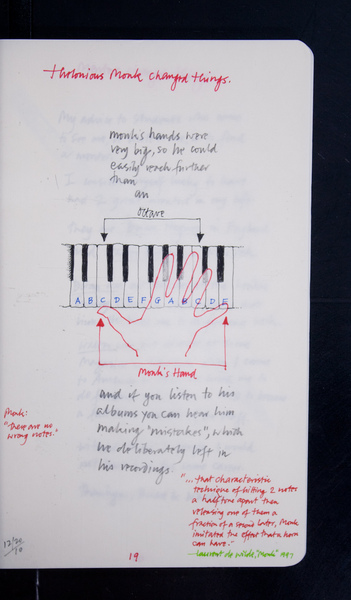 Thelonious Monk changed things.
monk's hands were
very big, so he could
easily reach further
than
an
octave
A B C D E F G A B C D E
Monk's Hand
and if you listen to his
albums you can hear him
making "mistakes", which
he deliberately left in
his recordings.
Monk:
"There are no
wrong notes."
"...that characteristic
technique of hitting 2 notes
a halftone apart then
releasing one of them a
fraction of a second later, Monk
imitates the effect that a horn
can have."
—Laurent de Wilde, "Monk" 1997
12/20
/10
19